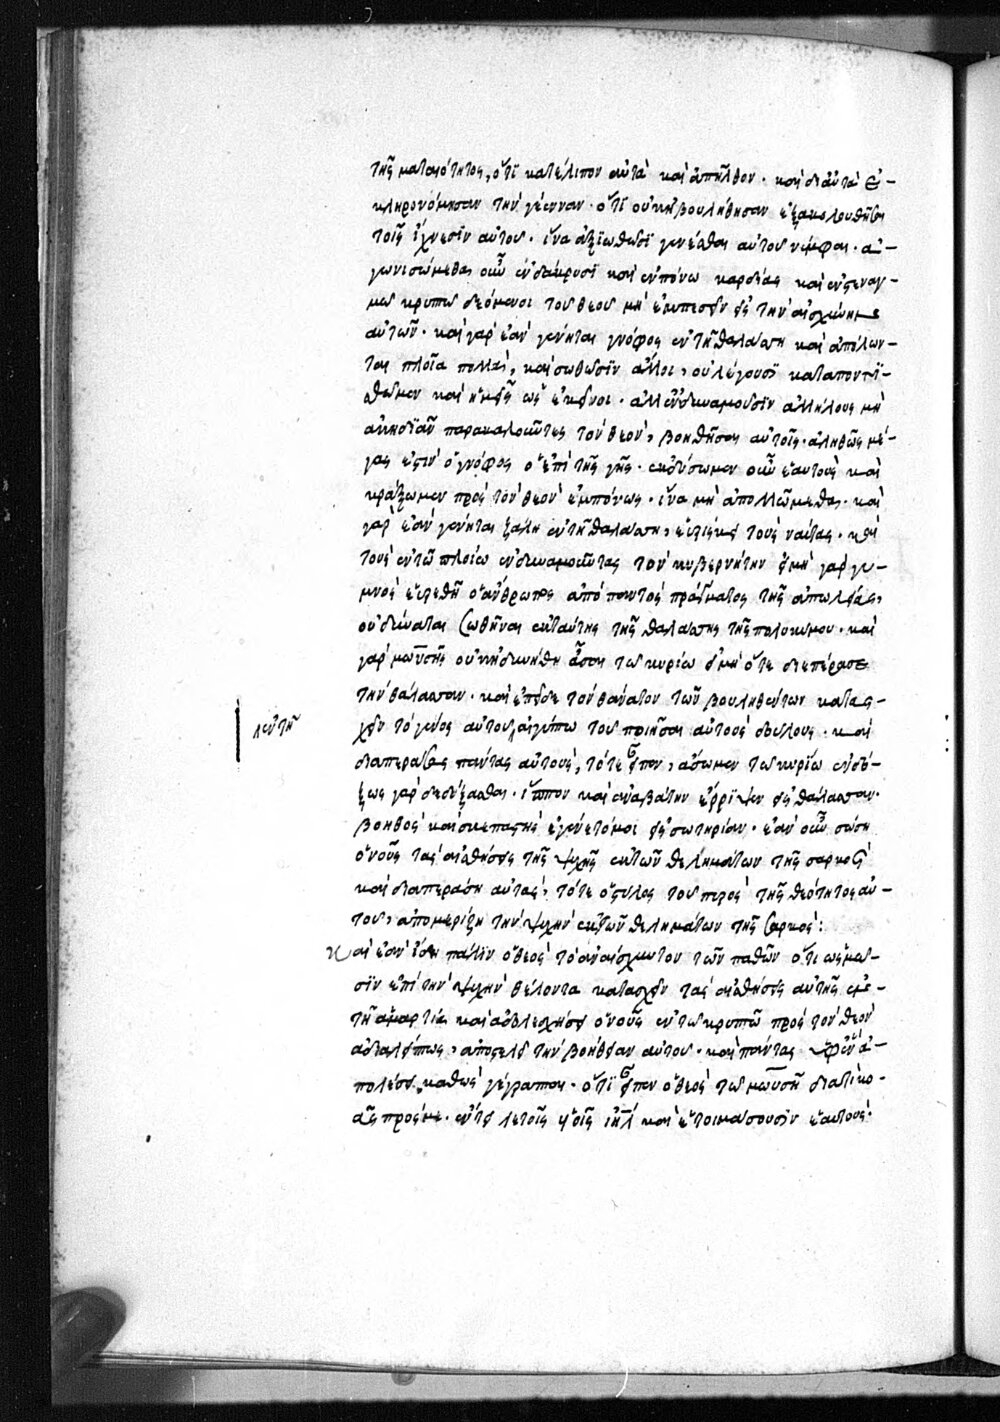 τῆς ματαιότητος, ὅτι κατέλιπον αὐτὰ καὶ ἀπῆλθον. καὶ δι αὐτὰ ἐ-
κληρονόμησαν τὴν γέενναν. ὅτι οὐκ ἠβουλήθησαν ἐξακολουθῆσαι
τοῖς ἴχνεσϊν αὐτοῦ. ἵνα ἀξϊωθῶσϊ γενέσθαι αὐτοῦ νύμφαι. ἀ-
γωνισώμεθα οὖν ἐν δάκρυσϊ καὶ ἐν πόνω καρδίας καὶ ἐν στεναγ-
μῶ κρυπτῶ δεόμενοι τοῦ θεοῦ μὴ ἐμπεσεῖν εἰς τὴν αἰσχύνην
αὐτῶν. καὶ γὰρ ἐὰν γένηται γνόφος ἐν τῆ θαλάσση καὶ ἀπόλων-
ται πλοῖα πολλὰ, καὶ σωθῶσϊν ἄλλοι, οὐ λέγουσϊ καταποντϊ-
σθῶμεν καὶ ἡμεῖς ὡς ἐκεῖνοι. ἀλλ ἐνδυναμοῦσϊν ἀλλήλους μὴ
ἀκηδιᾶν παρακαλοῦντες τὸν θεὸν, βοηθῆσαι αὐτοῖς. ἀληθῶς μέ-
γας ἐστὶν ὁ γνόφος ὁ ἐπὶ τῆς γῆς. ἐκδύσωμεν οὖν ἑαυτοὺς καὶ
κράξωμεν πρὸς τὸν θεὸν ἐμπόνως. ἵνα μὴ ἀπολλώμεθα. καὶ
γὰρ ἐὰν γένηται ζάλη ἐν τῆ θαλάσση, τοὺς ναύτας. καὶ
τοὺς ἐν τῶ πλοίω ἐνδυναμοῦντας τὸν κυβερνήτην εἰ μὴ γὰρ γυ-
μνὸς εὑρεθῆ ὁ ἄνθρωπος ἀπὸ παντὸς πράγματος τῆς ἀπωλείας,
οὐ δύναται σωθῆναι ἐκ ταύτης τῆς θαλάσσης τῆς πολυκύμου. καὶ
γὰρ μωϋσῆς οὐκ ἠδυνήθη ᾆσαι τῶ κυρίω εἰ μὴ ὅτε διεπέρασε
τὴν θάλασσαν. καὶ ἐπεῖδε τὸν θάνατον τῶν βουληθέντων κατας-
χεῖν τὸ γένος αὐτοῦ ἐν αἰγύπτω τοῦ ποιῆσαι αὐτοὺς δούλους. καὶ
διαπεράσας πάντας αὐτοὺς, τότε εἶπεν, ἄσωμεν τῶ κυρίω ἐνδό-
ξως γὰρ δεδόξασθαι. ἵππον καὶ ἀναβάτην ἔρριψεν εἰς θάλασσαν.
βοηθὸς καὶ σκεπαστὴς ἐγένετό μοι εἰς σωτηρίαν. ἐὰν οὖν σώση
ὁ νοῦς τὰς αἰσθήσεις τῆς ψυχῆς ἐκ τῶν θελημάτων τῆς σαρκὸς
καὶ διαπεράση αὐτὰς, τότε ὁ στύλος τοῦ πυρὸς τῆς θεότητος αὐ-
τοῦ, ἀπομερίζη τὴν ψυχὴν ἐκ τῶν θελημάτων τῆς σαρκὸς:
Καὶ ἐὰν ἴδη πάλϊν ὁ θεὸς τὸ ἀναίσχυντον τῶν παθῶν ὅτι ὁρμῶ-
σϊν ἐπὶ τὴν ψυχὴν θέλοντα κατασχεῖν τὰς αἰσθήσεις αὐτῆς ἐν
τῆ ἁμαρτία καὶ ἀδολεσχήσει ὁ νοῦς ἐν τῶ κρυπτῶ πρὸς τὸν θεὸν
ἀδιαλείπτως, ἀποστελεῖ τὴν βοήθειαν αὐτοῦ. καὶ πάντας ὑφὲν ἀ-
πολέσει, καθὼς γέγραπται. ὅτϊ εἶπεν ὁ θεὸς τῶ μωϋσῆ διατί βο-
ᾶς πρός με. εἰπὲ τοῖς υἱοῖς ιη̅λ καὶ ἑτοιμάσουσϊν ἑαυτοὺς.